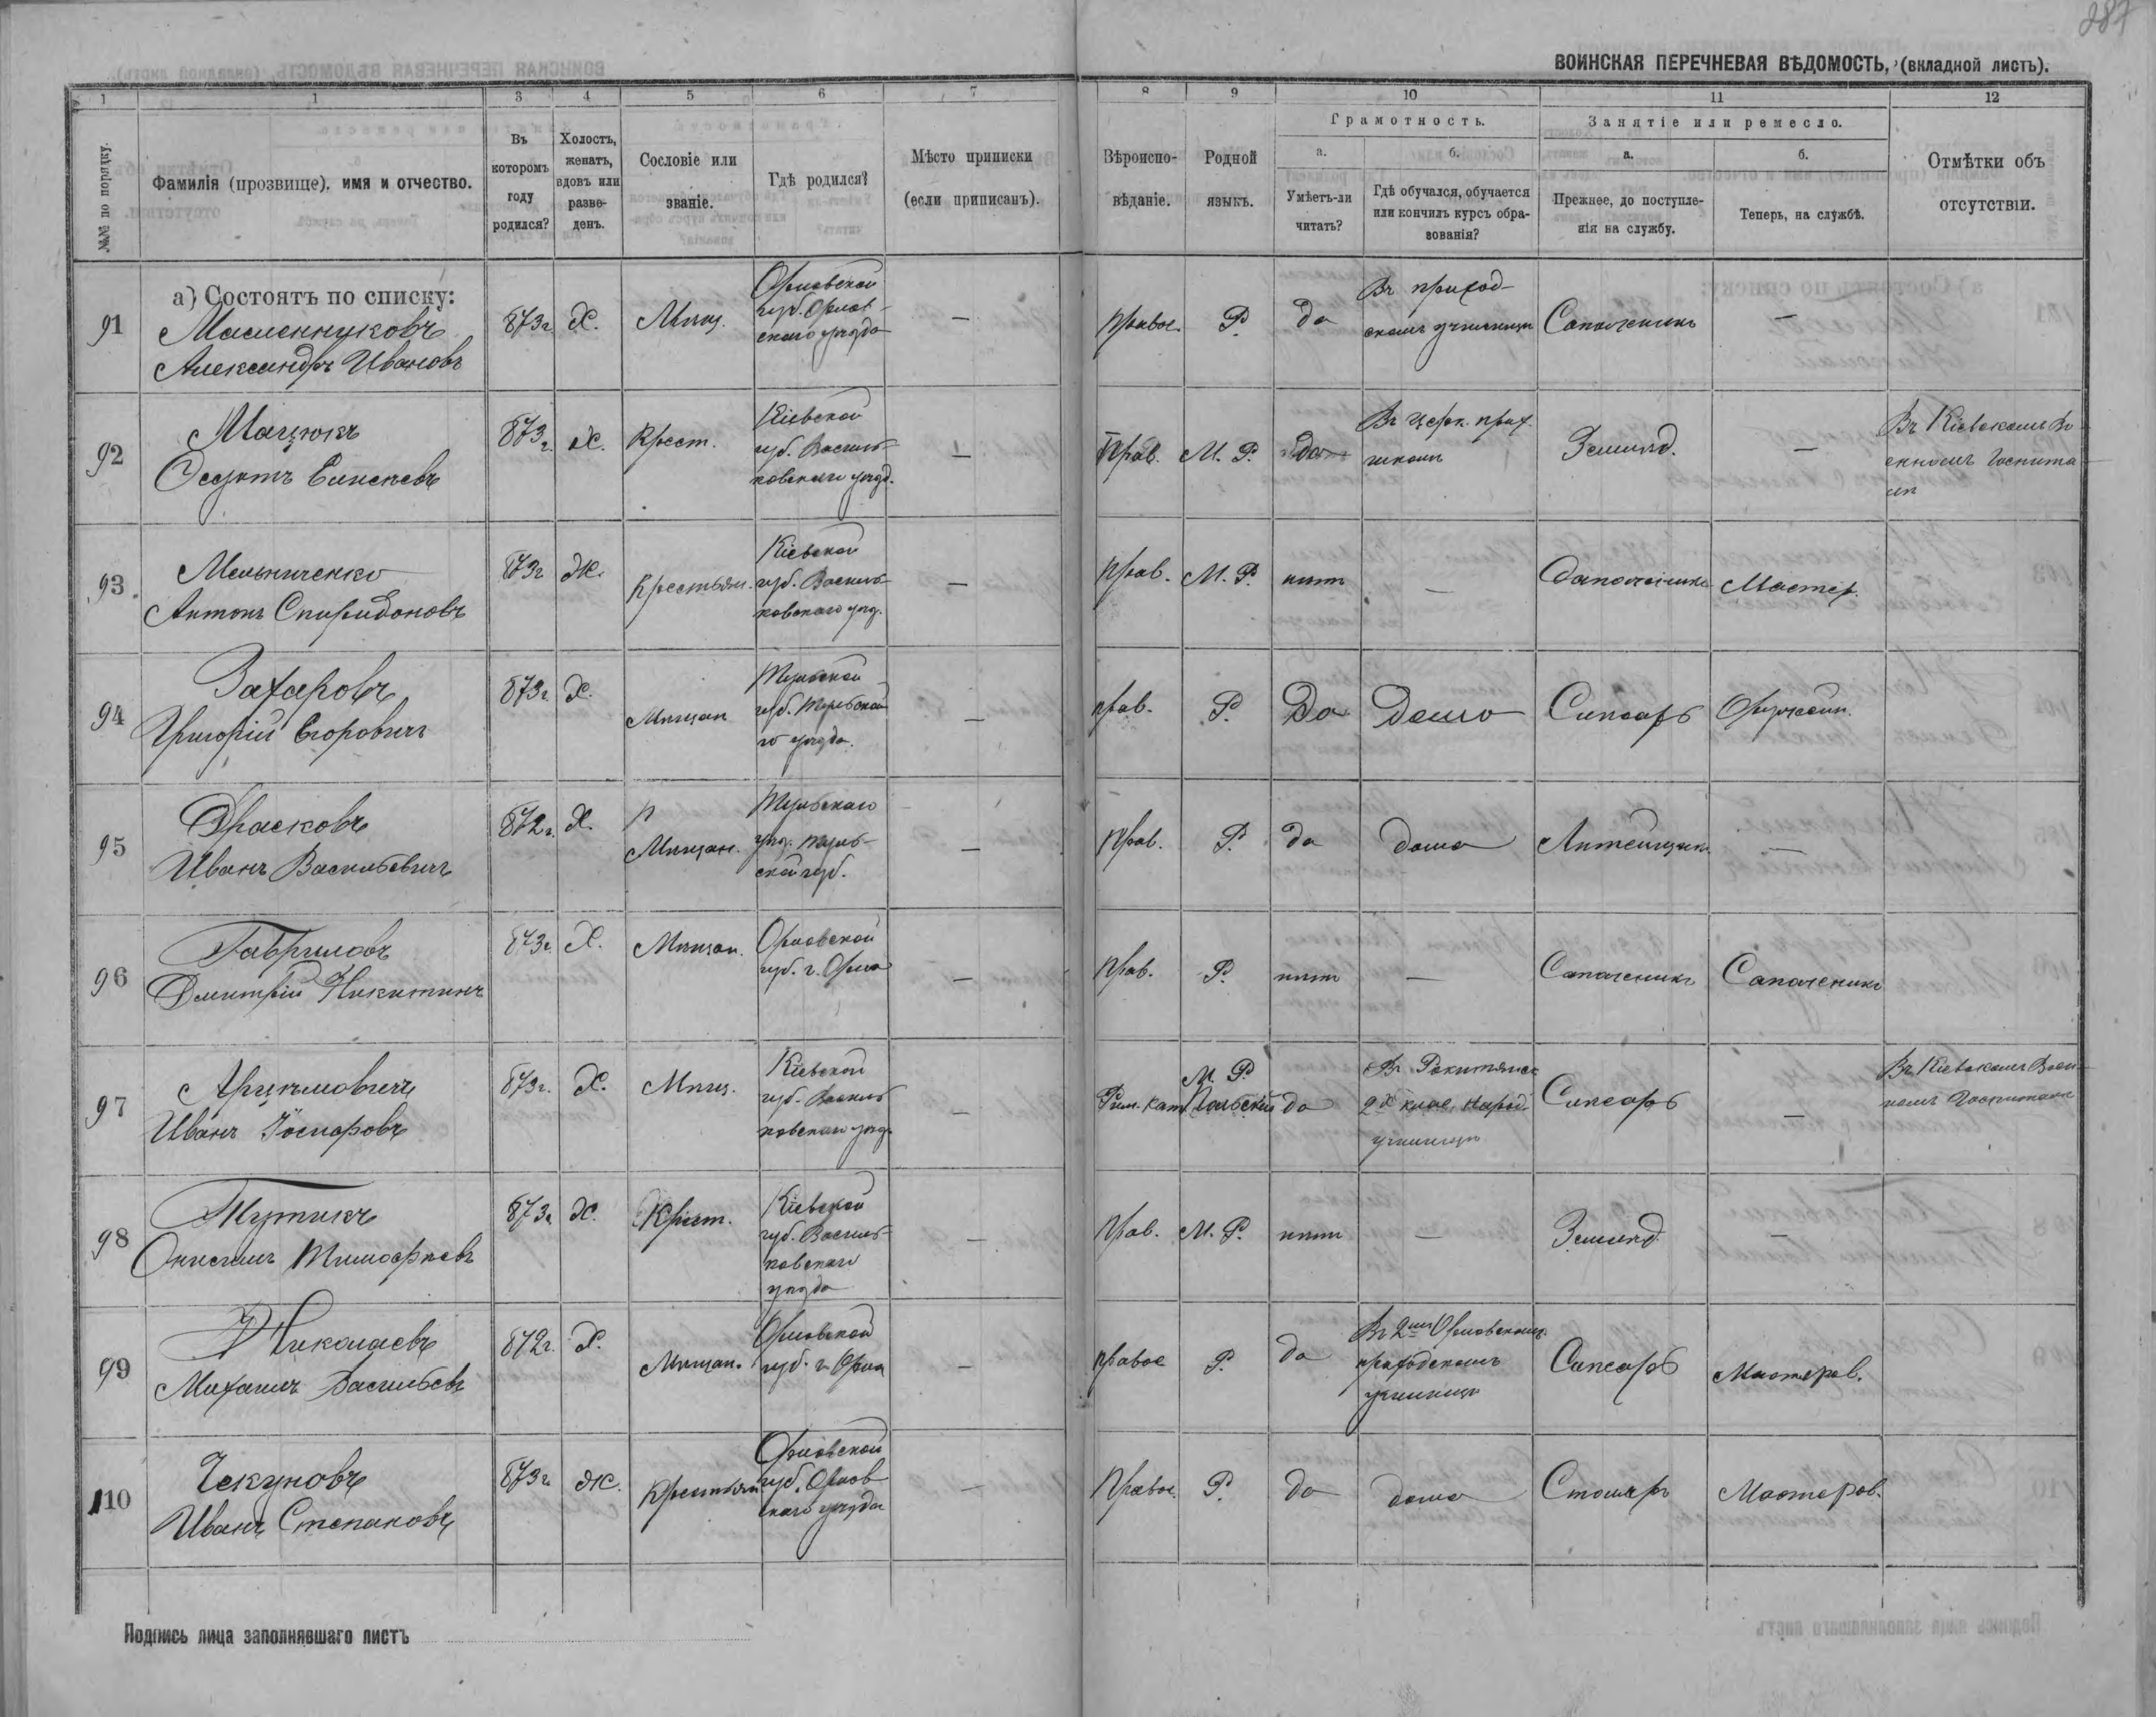 287
ВОИНСКАЯ ПЕРЕЧНЕВАЯ ВѢДОМОСТЬ, (вкладной листъ).
1 1 3 4 5 6 7 8 9 10 11 12
№№ по порядку.
Фамилія (прозвище), имя и отчество.
Въ которомъ году родился?
Холостъ, женатъ, вдовъ или разведенъ.
Сословіе или званіе.
Гдѣ родился?
Мѣсто приписки (если приписанъ).
Вѣроисповѣданіе.
Родной языкъ.
Грамотность.
а.
Умѣетъ-ли читать?
б.
Гдѣ обучался, обучается или кончилъ курсъ образованія?
Занятіе или ремесло.
а.
Прежнее, до поступленія на службу.
б.
Теперь, на службѣ.
Отмѣтки объ отсутствіи.
а) Состоятъ по списку:
91
Масленниковъ
Александръ Ивановъ
873г. Х. Мѣщ.
Орловской
губ. Орлов-
скаго уѣзда
—
Правос. Р. да
Въ приход-
скомъ училищѣ
Сапожникъ —
92
Мацюкъ
Елисеевъ
873г. Х. Крест.
Кіевской
губ. Василь-
ковскаго уѣзд.
—
Прав. М. Р. да
Въ церк. прих.
школѣ
Землед. —
Въ Кіевскомъ Во
енномъ Госпита
лѣ
93.
Мельниченко
Антонъ Спиридоновъ
873г. Ж. Крестьян.
Кіевской
губ. Василь-
ковскаго уѣз.
—
Прав. М. Р. нѣтъ —
Сапожникъ Мастер.
94
Захаровъ
Григорій Егоровичъ
873г. Х. Мѣщан
Тульской
губ. Тульска
го уѣзда.
—
прав. Р. Да Дома Слесарь Оружейн.
95
Драсковъ
Иванъ Васильевичъ
872г. Х. Мѣщан.
Тульскаго
уѣз. Туль-
ской губ.
—
Прав. Р. да дома Литейщик. —
96
Гавриловъ
Дмитрій Никитинъ
873г. Х. Мѣщан.
Орловской
губ. г. Орла
—
Прав. Р. нѣтъ — Сапожникъ Сапожникъ
97
Арцимовичъ
Иванъ
873г. Х. Мѣщ.
Кіевской
губ. Василь
ковскаго уѣзд.
—
Рим. Кат. М. Р. Польскій да
Въ Рокитянск
2х клас. Народ.
училищѣ
Слесарь —
Въ Кіевскомъ Воен-
номъ Госпиталѣ
98
Тутикъ
Онисимъ Тимофѣевъ
873г. Х. Крест.
Кіевской
губ. Василь-
ковскаго
уѣзда
—
Прав. М. Р. нѣтъ — Землед. —
99
Николаевъ
Михаилъ Васильевъ
872г. Х. Мѣщан.
Орловской
губ. г. Орла
—
правос Р. да
Въ 2мъ Орловскомъ
приходскомъ
училищѣ
Слесарь Мастеров.
110
Чекуновъ
Иванъ Степановъ
873г. Ж. Крестьян
Орловской
губ. Орлов
скаго уѣзда
—
Правос. Р. да дома Столяръ Мастеров.
Подпись лица заполнявшаго листъ